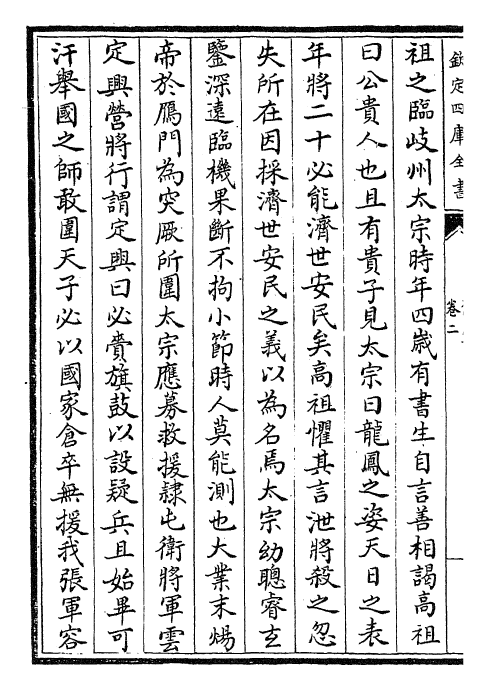 欽定四庫全書
卷二
祖之臨岐州太宗時年四嵗有書生自言善相謁高祖
曰公貴人也且有貴子見太宗曰龍鳳之姿天日之表
年將二十必能濟世安民矣高祖懼其言泄將殺之忽
失所在因採濟世安民之義以為名焉太宗幼聰睿玄
鑒深遠臨機果斷不拘小節時人莫能測也大業末煬
帝於鴈門為突厥所圍太宗應募救援隷屯衛將軍雲
定興營將行謂定興曰必賫旗鼓以設疑兵且始畢可
汗舉國之師敢圍天子必以國家倉卒無援我張軍容